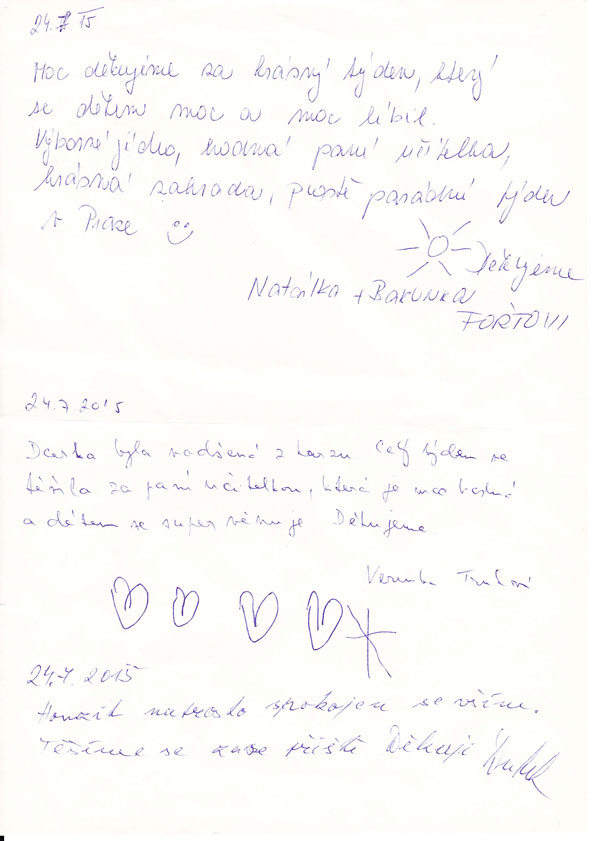 24. 7. 15
Moc děkujeme za krásný týden, který
se dětem moc a moc líbil.
Výborné jídlo, hodná paní učitelka,
krásná zahrada, prostě parádní týden
v Praze
Děkujeme
Natálka + Barunka
FOŘTOVI
24.7.2015
Dcerka byla nadšená z kurzu. Celý týden se
těšila za paní učitelkou, která je moc hodná
a dětem se super věnuje. Děkujeme.
24.7.2015
Honzík naprosto spokojen se vším.
Těšíme se zase příště Děkuji